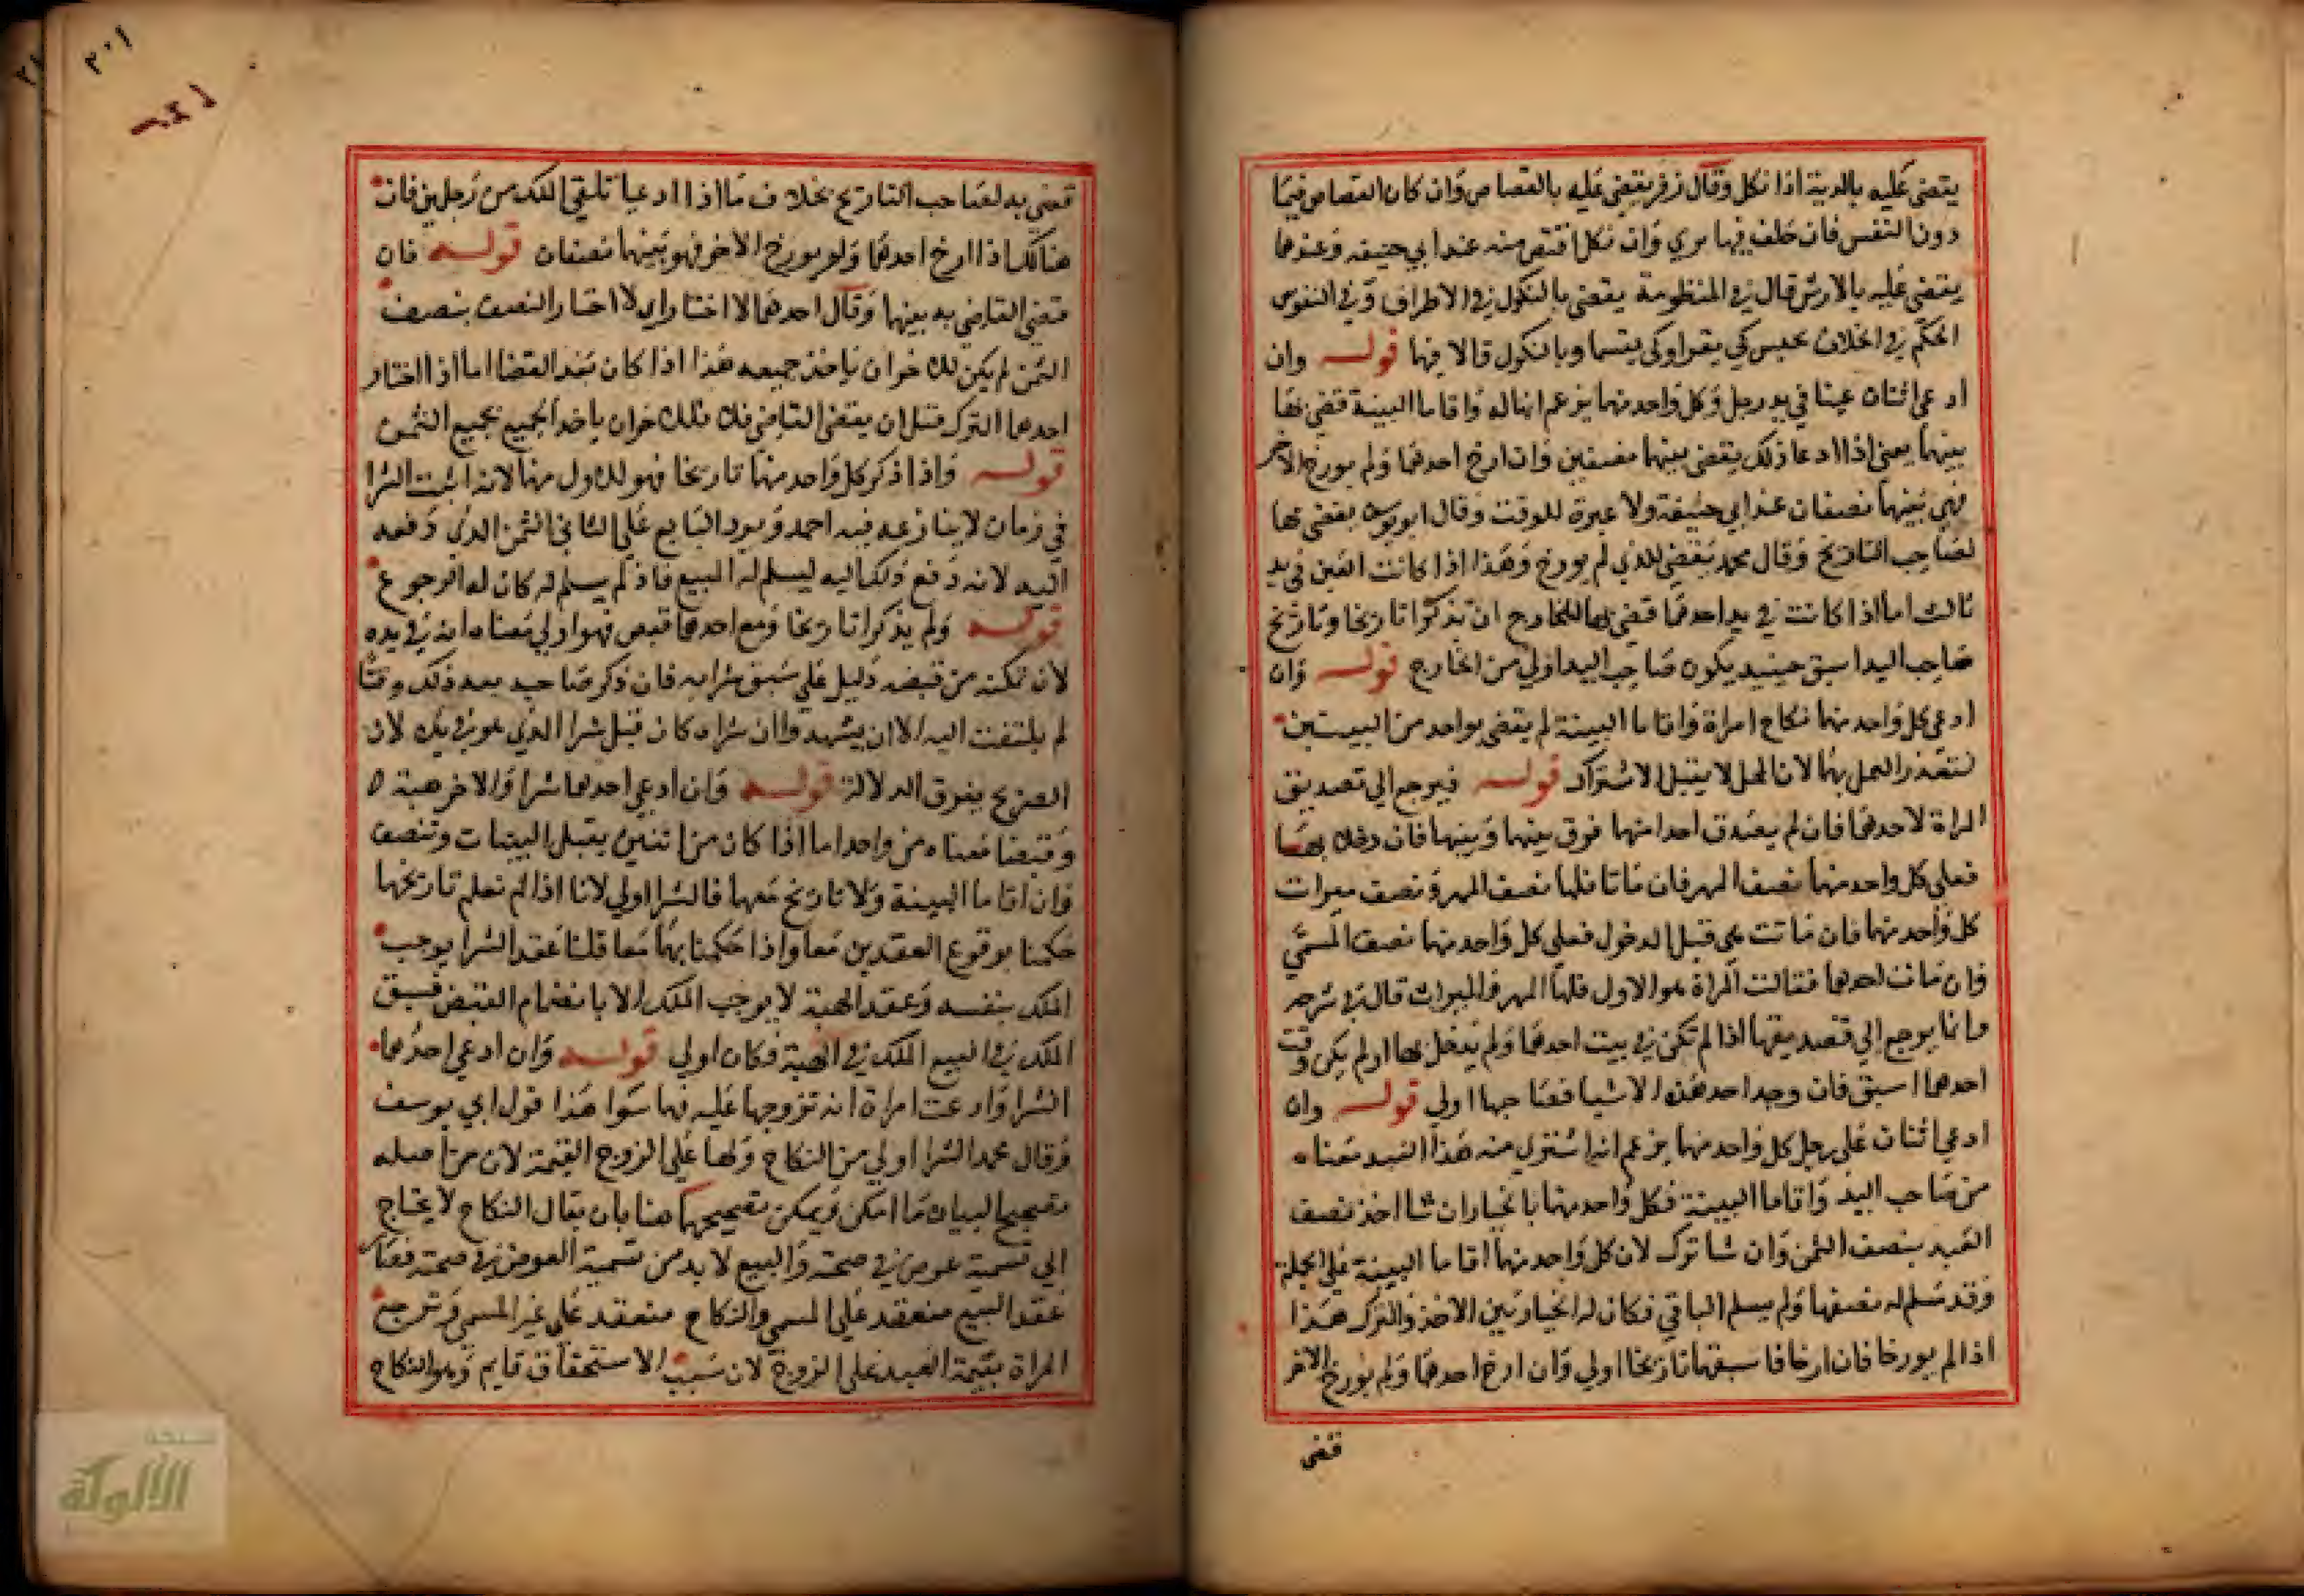 يقضى عليه بالدية اذا نكل وقال زفر يقضى عليه بالقصاص وان كان القصاص فيما
دون النفس فان حلف فيها بري وان نكل اقتص منه عند ابي حنيفه وعندهما
يقضى عليه بالارش قال في المنظومة يقضى بالنكول في الاطراف وفي النفوس
الحكم في الخلاف يحبس كي يقر او كي يقسما وبالنكول قالا فيها قولـه وان
ادعى اثنان عينا في يد رجل وكل واحد منهما يزعم انها له واقاما البينة قضى بها
بينهما يعنى اذا ادعا ذلك يقضى بينهما نصفين وان ارخ احدهما ولم يورخ الاخر
فهي بينهما نصفان عند ابي حنيفة ولا عبرة للوقت وقال ابو يوسف يقضى بها
لصاحب التاريخ وقال محمد يقضى للذي لم يورخ وهذا اذا كانت العين في يد
ثالث اما اذا كانت في يد احدهما قضى بها للخارج ان تذكرا تاريخا وتاريخ
صاحب اليد اسبق حينيد يكون صاحب اليد اولي من الخارج قولـه وان
ادعى كل واحد منهما نكاح امراة واقاما البينة لم يقضى بواحد من البينتين
لتعذر العمل بهما لان المحل لا يقبل الاشتراك قولـه فيرجع الي تصديق
المراة لاحدهما فان لم يصدق احدا منهما فرق بينهما وبينها فان دخلا بها
فعلى كل واحد منهما نصف المهر فان ماتا فلها نصف المهر ونصف ميراث
كل واحد منهما فان ماتت هي قبل الدخول فعلى كل واحد منهما نصف المسمى
وان مات احدهما فقالت المراة هو الاول فلها المهر والميراث قال في شرحه
وانما يرجع الي تصديقها اذا لم تكن في بيت احدهما ولم يدخل بها او لم يكن وقت
احدهما اسبق فان وجد احد هذه الاشيا فصاحبها اولي قولـه وان
ادعي اثنان على رجل كل واحد منهما يزعم انه اشترى منه هذا العبد معناه
من صاحب اليد واقاما البينة فكل واحد منهما بالخيار ان شا اخذ نصف
العبد بنصف الثمن وان شا ترك لان كل واحد منهما اقاما البينة على الجملة
وقد سلم له نصفها ولم يسلم الباقي فكان له الخيار بين الاخذ والترك هذا
اذا لم يورخا فان ارخا فاسبقهما تاريخا اولي وان ارخ احدهما ولم يورخ الاخر
قضى
٢٠١
قضي به لصاحب التاريخ بخلاف ما اذا ادعيا تلقي الملك من رجلين فان
هنالك اذا ارخ احدهما ولم يورخ الاخر فهو بينهما نصفان قولـه فان
قضى القاضي به بينهما وقال احدهما لا اختار اي لا اختار النصف بنصف
الثمن لم يكن للاخر ان ياخذ جميعه هذا اذا كان بعد القضا اما اذا اختار
احدهما الترك قبل ان يقضى القاضي فان للاخران ياخذ الجميع بجميع الثمن
قولـه واذا ذكر كل واحد منهما تاريخا فهو للاول منهما لانه اثبت الشرا
في زمان لا ينازعه فيه احمد ويرد البايع على الثاني الثمن الذي دفعه
اليه لانه دفع ذلك اليه ليسلم له المبيع فاذ لم يسلم له كان له الرجوع
قولـه ولم يذكرا تاريخا ومع احدهما قبض فهو اولي معناه انه في يده
لان تمكنه من قبضه دليل على سبق شرايه فان ذكر صاحبه بعد ذلك وقتا
لم يلتفت اليه الا ان يشهدوا ان شراه كان قبل شرا الذي هو في يده لان
الصريح يفوق الدلالة قولـه وان ادعى احدهما شرا والاخر هبة
وقبضا معناه من واحد اما اذا كان من اثنين يقبل البينات وتنصف
وان اقاما البينة ولا تاريخ معهما فالشرا اولي لانا اذا لم نعلم تاريخهما
حكمنا بوقوع العقدين معا واذا حكمنا بهما معا قلنا عقد الشرا يوجب
الملك بنفسه وعقد الهبة لا يوجب الملك الا بانضمام القبض فسبق
الملك في البيع الملك في الهبة فكان اولي قولـه وان ادعي احدهما
الشرا وادعت امراة انه تزوجها عليه فهما سوا هذا قول ابي يوسف
وقال محمد الشرا اولي من النكاح ولها على الزوج القيمة لان من اصله
تصحيح البيان ما امكن ويمكن تصحيحهما هنا بان يقال النكاح لا يحتاج
الي تسمية عوض في صحته والبيع لا بد من تسمية العوض في صحته فصار
عقد البيع منعقد على المسمى والنكاح منعقد على غير المسمى وترجع
المراة بقيمة العبد على الزوج لان سبب الاستحقاق قايم وهو النكاح
شبكة
الألوكة